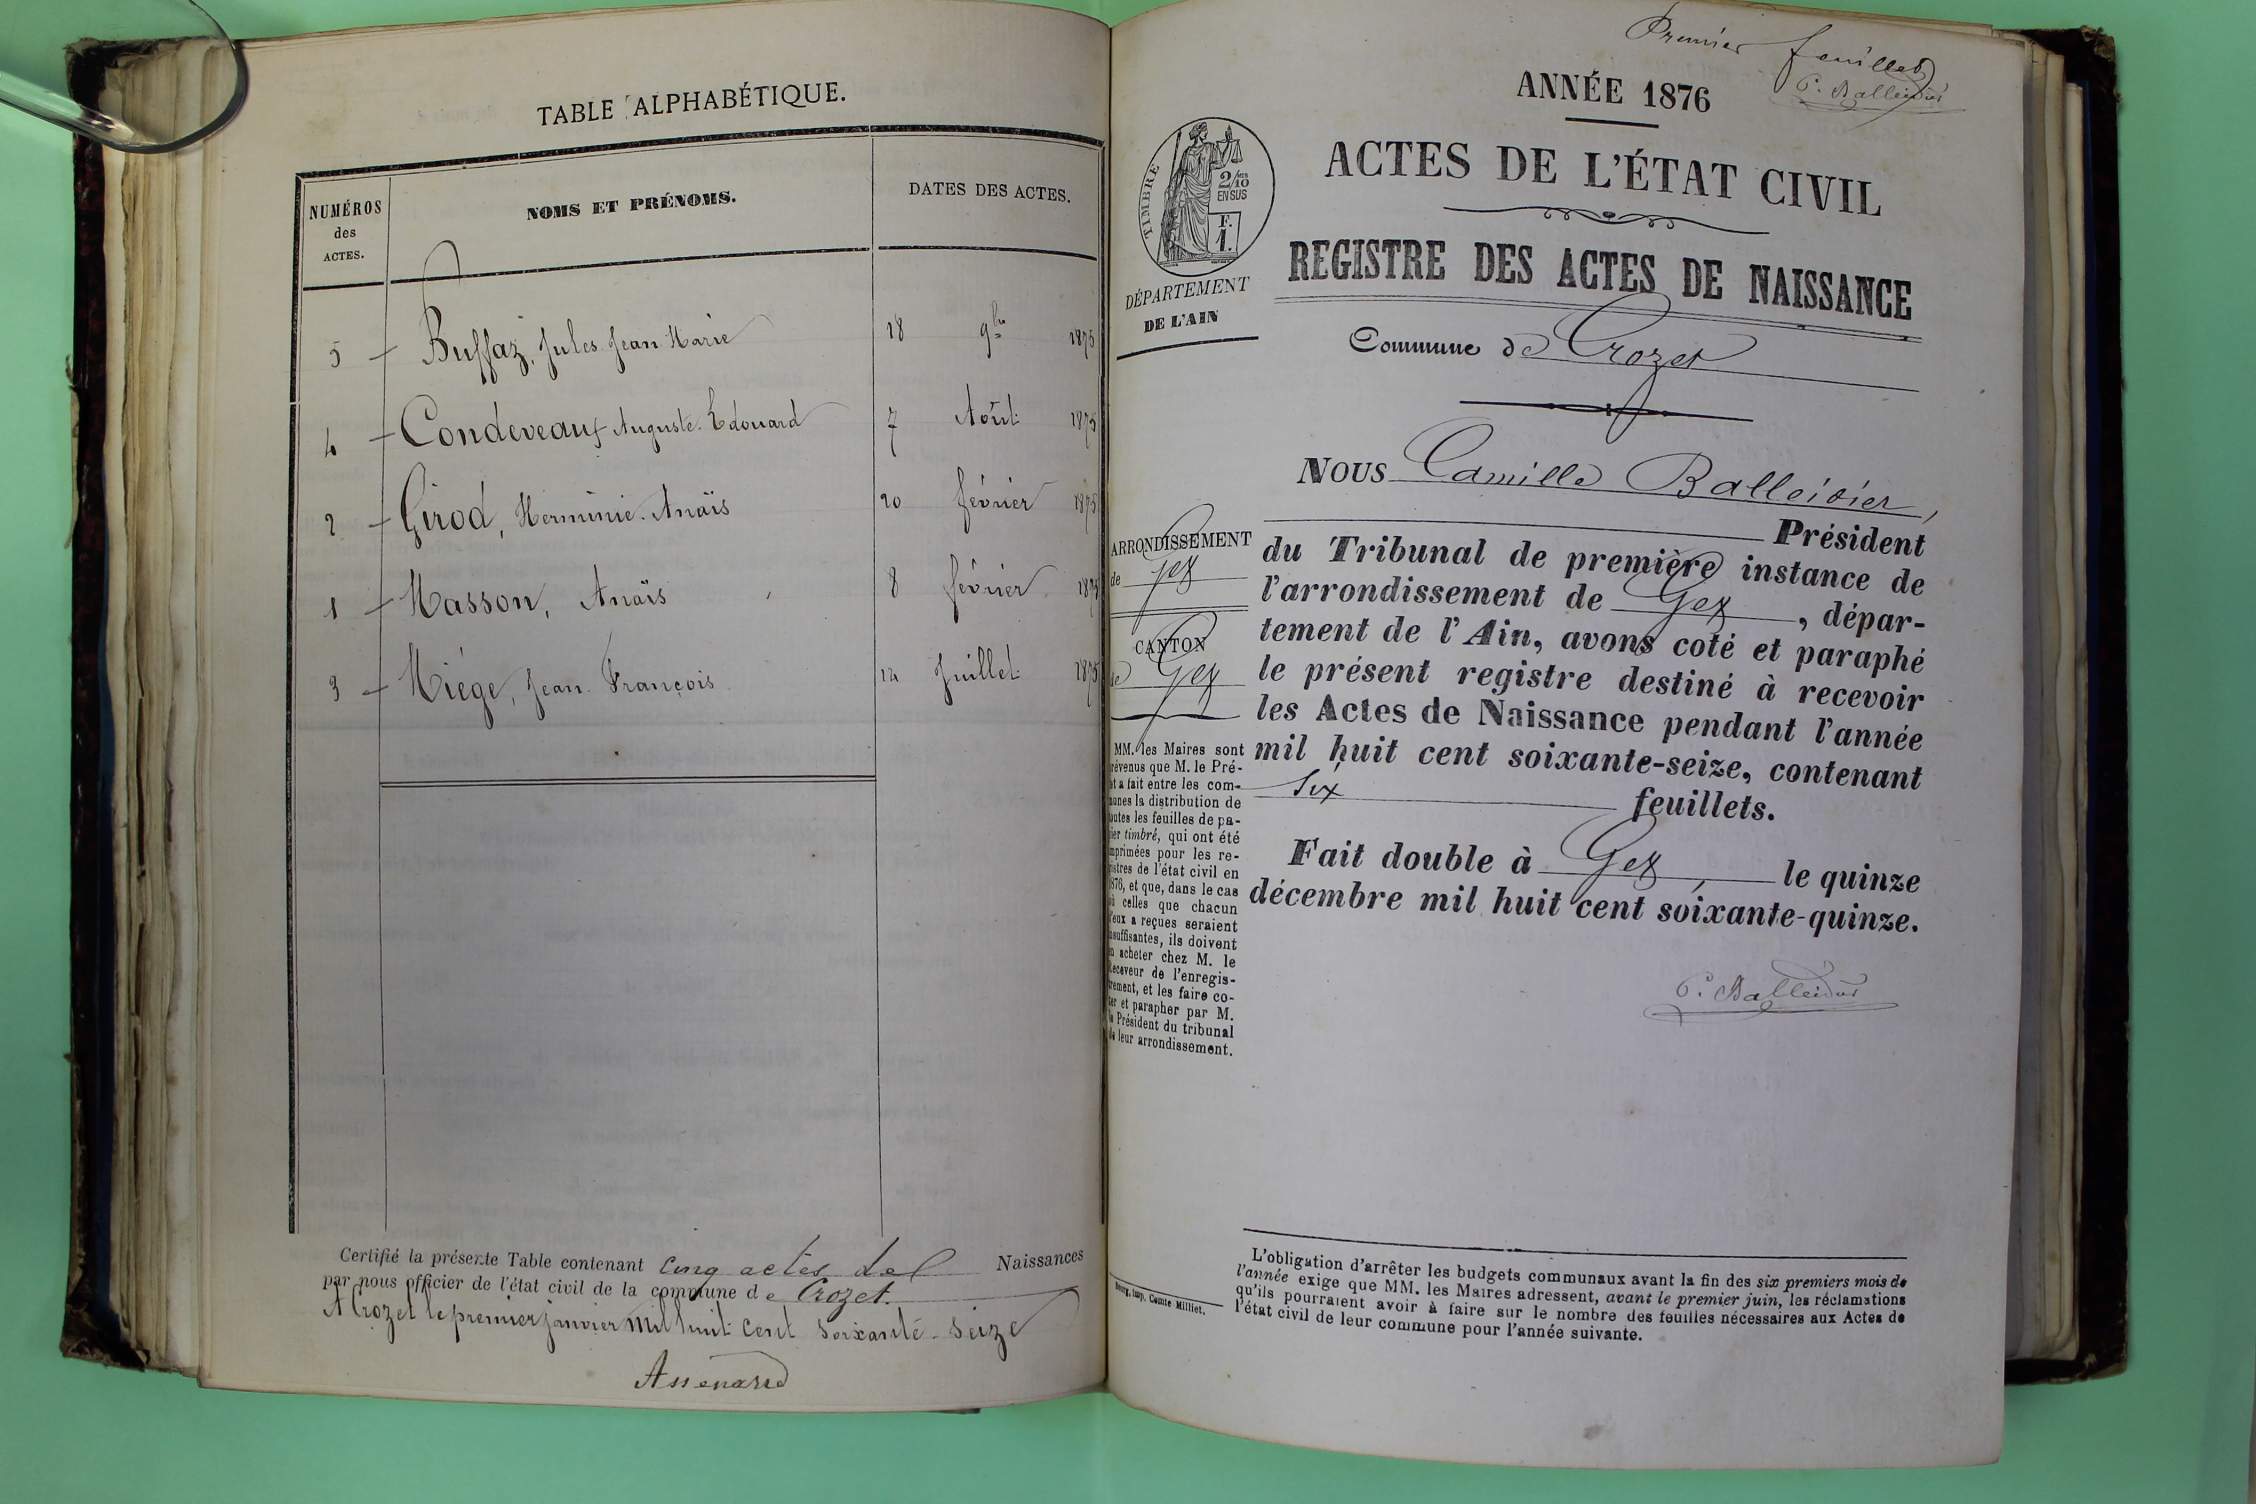 TABLE ALPHABÉTIQUE.
NUMÉROS des ACTES.
NOMS ET PRÉNOMS.
DATES DES ACTES.
5 — Buffaz, Jules Jean Marie 18 9bre 1875
4 — Condeveaux Auguste Edouard 7 Août 1875
2 — Girod, Herminie Anaïs 20 février 1875
1 — Masson, Anaïs 8 février 1875
3 — Miége, Jean François Juillet 1875
Certifié la présente Table contenant cinq actes de Naissances
par nous officier de l'état civil de la commune de Crozet.
A Crozet le premier janvier mil huit cent soixante-seize
Premier feuillet
C. Balleidier
ANNÉE 1876
ACTES DE L'ÉTAT CIVIL
TIMBRE
2/10 EN SUS
F. 1.
REGISTRE DES ACTES DE NAISSANCE
DÉPARTEMENT
DE L'AIN
Commune de Crozet
NOUS Camille Balleidier,
Président
ARRONDISSEMENT
de Gex
CANTON
de Gex
du Tribunal de première instance de
l'arrondissement de Gex, dépar-
tement de l'Ain, avons coté et paraphé
le présent registre destiné à recevoir
les Actes de Naissance pendant l'année
mil huit cent soixante-seize, contenant
six feuillets.
Fait double à Gex, le quinze
décembre mil huit cent soixante-quinze.
C. Balleidier
MM. les Maires sont
prévenus que M. le Pré-
fet a fait entre les com-
munes la distribution de
toutes les feuilles de pa-
pier timbré, qui ont été
imprimées pour les re-
gistres de l'état civil en
1876, et que, dans le cas
où celles que chacun
d'eux a reçues seraient
insuffisantes, ils doivent
en acheter chez M. le
Receveur de l'enregis-
trement, et les faire co-
ter et parapher par M.
le Président du tribunal
de leur arrondissement.
Bourg, imp. Comte Milliet.
L'obligation d'arrêter les budgets communaux avant la fin des six premiers mois de
l'année exige que MM. les Maires adressent, avant le premier juin, les réclamations
qu'ils pourraient avoir à faire sur le nombre des feuilles nécessaires aux Actes de
l'état civil de leur commune pour l'année suivante.